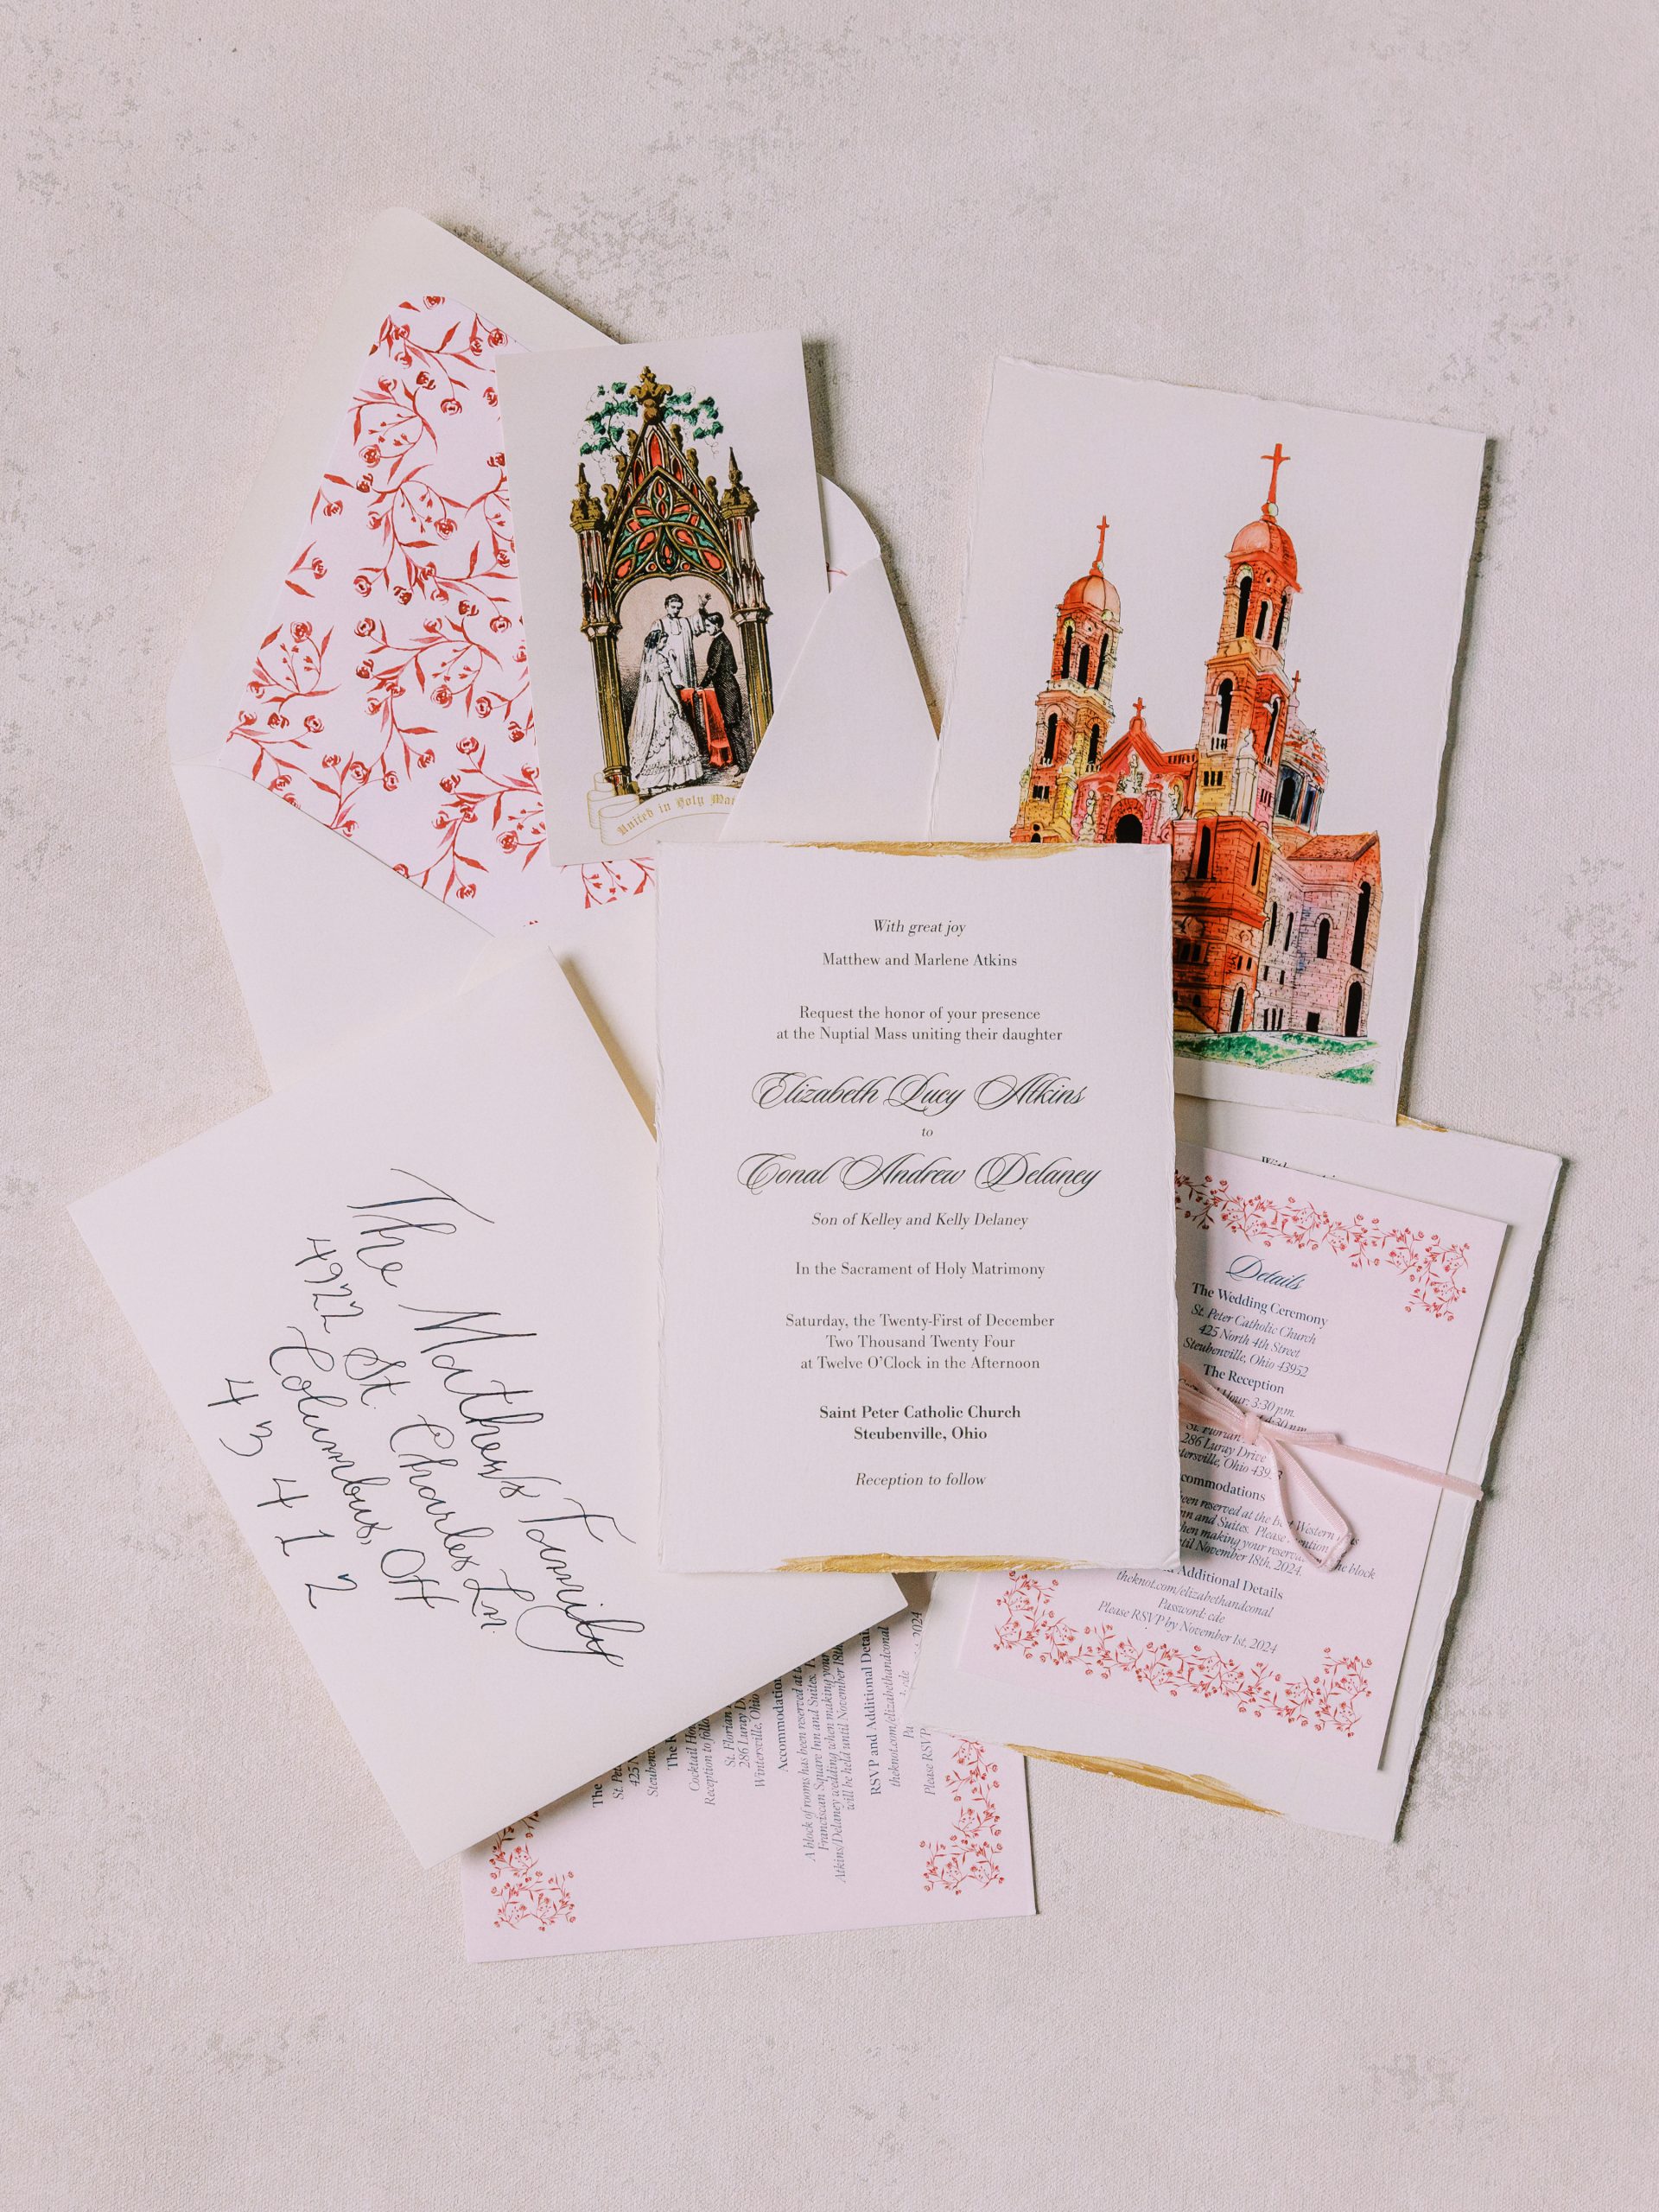 United in Holy
With great joy
Matthew and Marlene Atkins
Request the honor of your presence
at the Nuptial Mass uniting their daughter
Elizabeth Lucy Atkins
to
Conal Andrew Delaney
Son of Kelley and Kelly Delaney
In the Sacrament of Holy Matrimony
Saturday, the Twenty-First of December
Two Thousand Twenty Four
at Twelve O'Clock in the Afternoon
Saint Peter Catholic Church
Steubenville, Ohio
Reception to follow
The Mathews Family
4922 St. Charles Ln.
Columbus, OH
43412
Details
The Wedding Ceremony
St. Peter Catholic Church
425 North 4th Street
Steubenville, Ohio 43952
The Reception
Hour: 3:30 p.m.
4:30 p.m.
St. Florian
286 Luray Drive
Ohio
been reserved at the Best Western
Inn and Suites. Please mention
when making your the block
until November 18th, 2024.
Additional Details
theknot.com/elizabethandconal
Password: cde
Please RSVP by November 1st, 2024
The
St.
425
The
Cocktail
Reception to
St. Florian
286 Luray
Wintersville, Ohio
Accommodation
A block of rooms has been reserved at
Franciscan Square Inn and Suites.
Atkins/Delaney wedding when making your
will be held until November 18th
RSVP and Additional Detail
theknot.com/elizabethandconal
cde
Please RSVP
2024